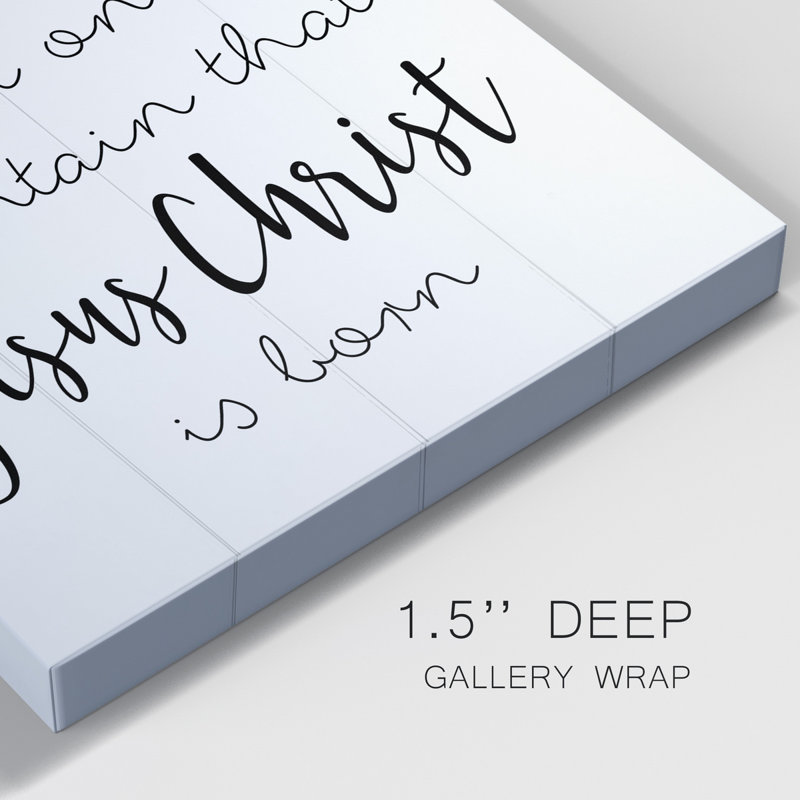 on
tain that
Jesus Christ
is born
1.5’’ DEEP
GALLERY WRAP